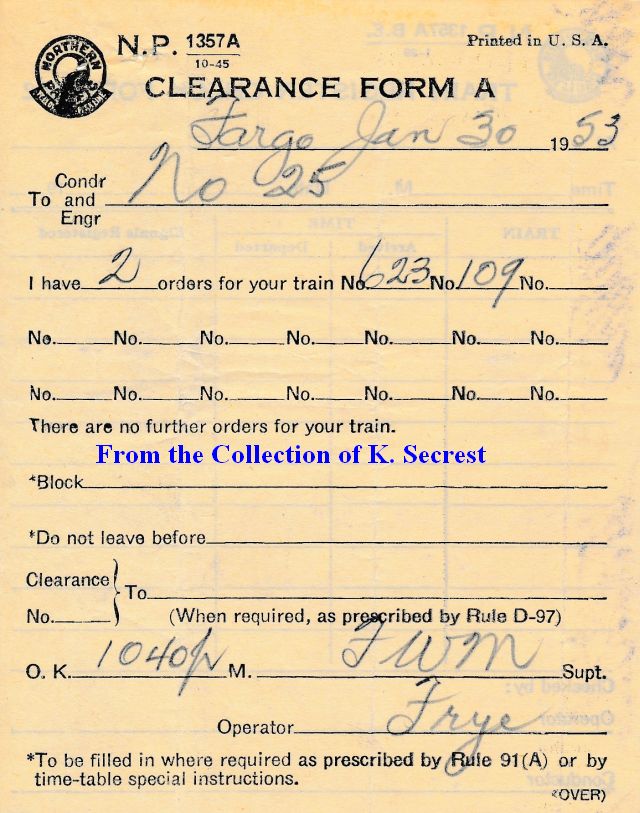 NORTHERN PACIFIC
N.P. 1357A
10-45
Printed in U. S. A.
CLEARANCE FORM A
Fargo Jan 30 1953
To Condr and Engr No 25
I have 2 orders for your train No. 623 No. 109 No.
No. No. No. No. No. No. No.
No. No. No. No. No. No. No.
There are no further orders for your train.
From the Collection of K. Secrest
*Block
*Do not leave before
Clearance No. } To
(When required, as prescribed by Rule D-97)
O. K. 1040p M. FWM Supt.
Operator Frye
*To be filled in where required as prescribed by Rule 91(A) or by
time-table special instructions.
(OVER)